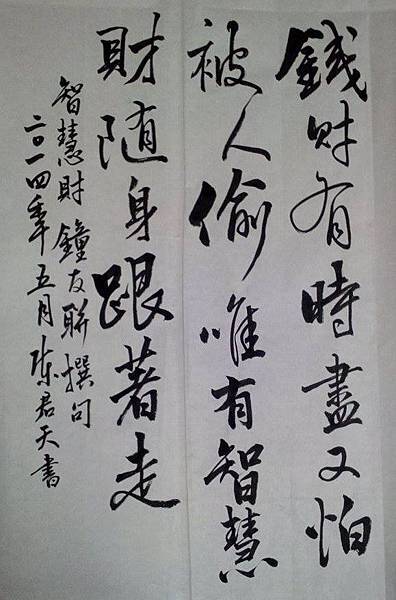 錢財有時盡又怕
被人偷唯有智慧
財随身跟著走
智慧財鐘友聯撰句
二〇一四年五月陈君天書